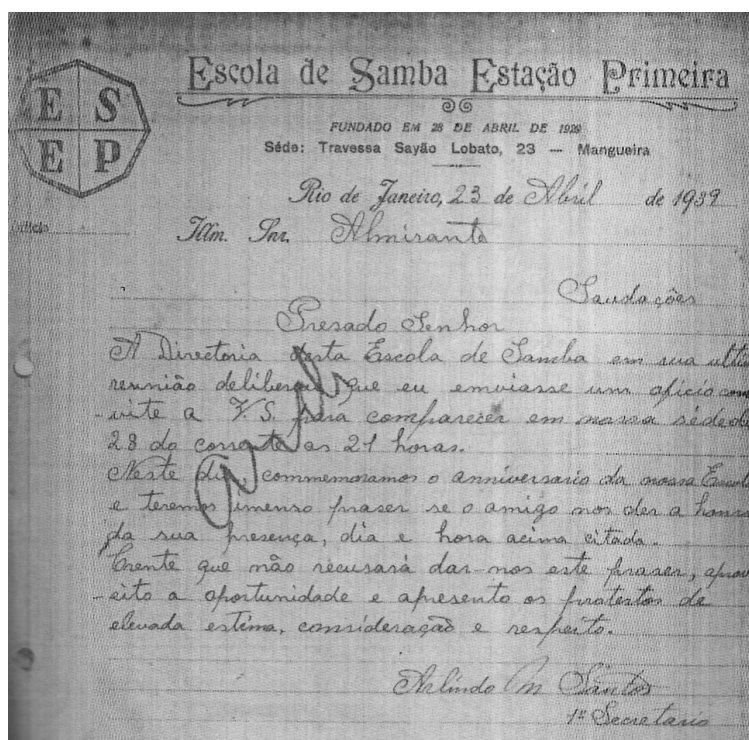 E S
E P
Escola de Samba Estação Primeira
FUNDADO EM 28 DE ABRIL DE 1929
Séde: Travessa Sayão Lobato, 23 — Mangueira
Rio de Janeiro, 23 de Abril de 1939
Illm. Snr. Almirante
Saudações
Presado Senhor
A Directoria desta Escola de Samba em sua ulti
reunião deliberou que eu enviasse um oficio con
-vite a V.S. para comparecer em nossa séde
28 do corrente as 21 horas.
Neste dia, commemoramos o anniversario da nossa Escola
e teremos imenso praser se o amigo nos der a honra
da sua presença, dia e hora acima citada.
Crente que não recusará dar-nos este praser, apro
-eito a oportunidade e apresento os protestos de
elevada estima, consideração e respeito.
Arlindo M Santos
1º Secretario